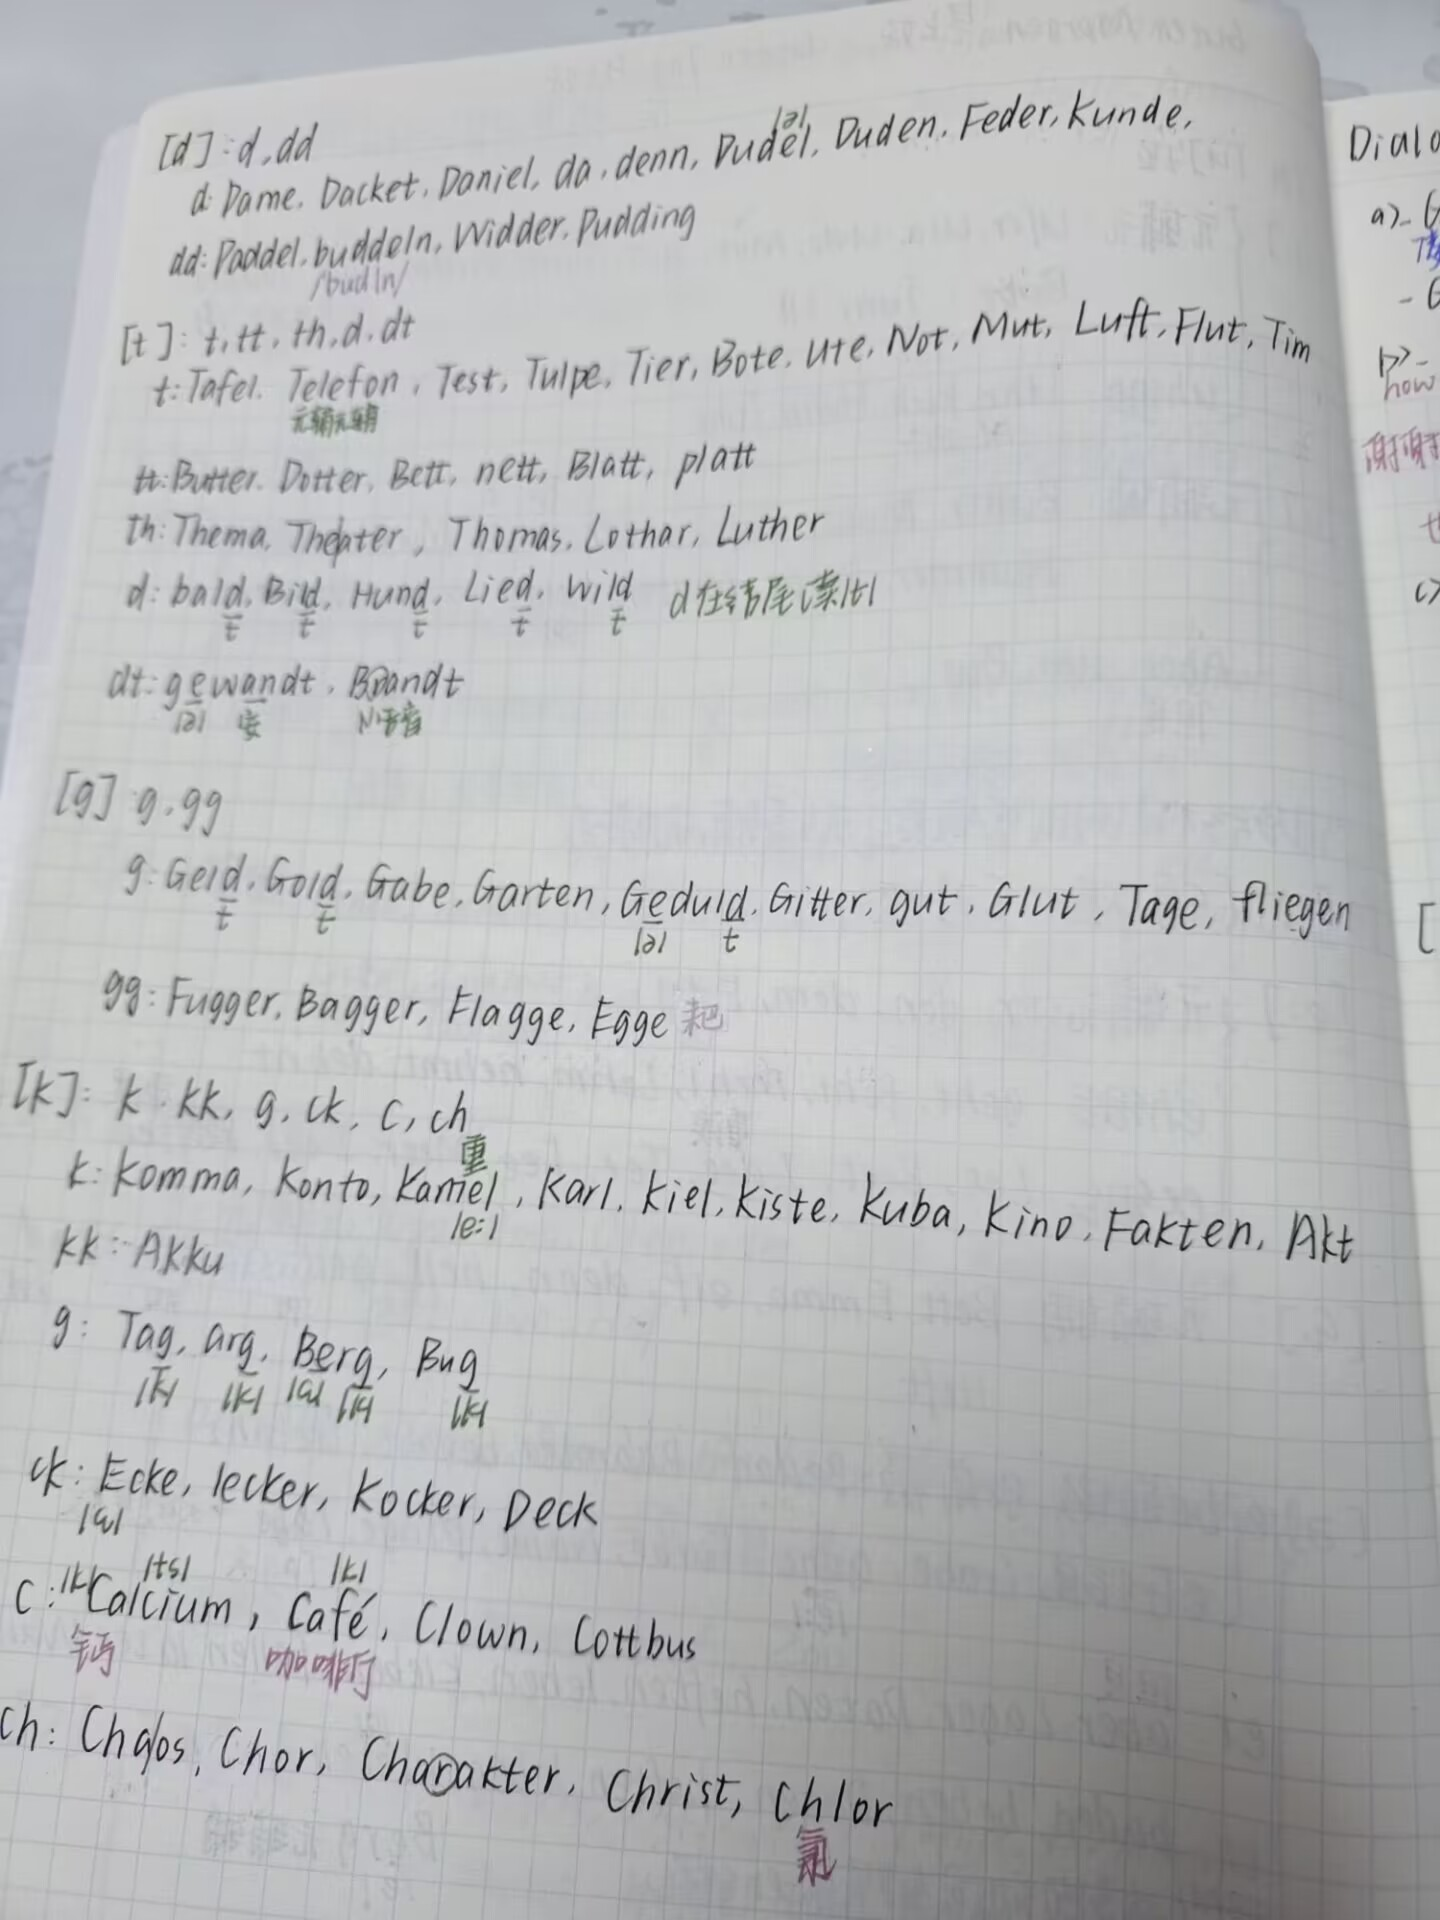 [d]: d, dd
/ə/
d: Dame, Dacket, Daniel, da, denn, Dudel, Duden, Feder, Kunde,
dd: Paddel, buddeln, Widder, Pudding
/budln/
[t]: t, tt, th, d, dt
t: Tafel, Telefon, Test, Tulpe, Tier, Bote, Ute, Not, Mut, Luft, Flut, Tim
元辅元辅
tt: Butter, Dotter, Bett, nett, Blatt, platt
th: Thema, Theater, Thomas, Lothar, Luther
d: bald, Bild, Hund, Lied, wild d在结尾读/t/
t t t t t
dt: gewandt, Brandt
/ə/ 小舌音
[g] g, gg
g: Geld, Gold, Gabe, Garten, Geduld, Gitter, gut, Glut, Tage, fliegen
t t /ə/ t
gg: Fugger, Bagger, Flagge, Egge 耙
[k]: k, kk, g, ck, c, ch
重
k: Komma, Konto, Kamel, Karl, Kiel, Kiste, Kuba, Kino, Fakten, Akt
/e:/
kk: Akku
g: Tag, arg, Berg, Bug
/k/ /k/ /ɛ/ /k/ /k/
ck: Ecke, lecker, Kocker, Deck
/ɛ/
/k/ /ts/ /k/
C: Calcium, Café, Clown, Cottbus
钙 咖啡厅
ch: Chaos, Chor, Charakter, Christ, Chlor
氯
Dialo
a)- G
- G
b)-
how
谢谢
c)
[